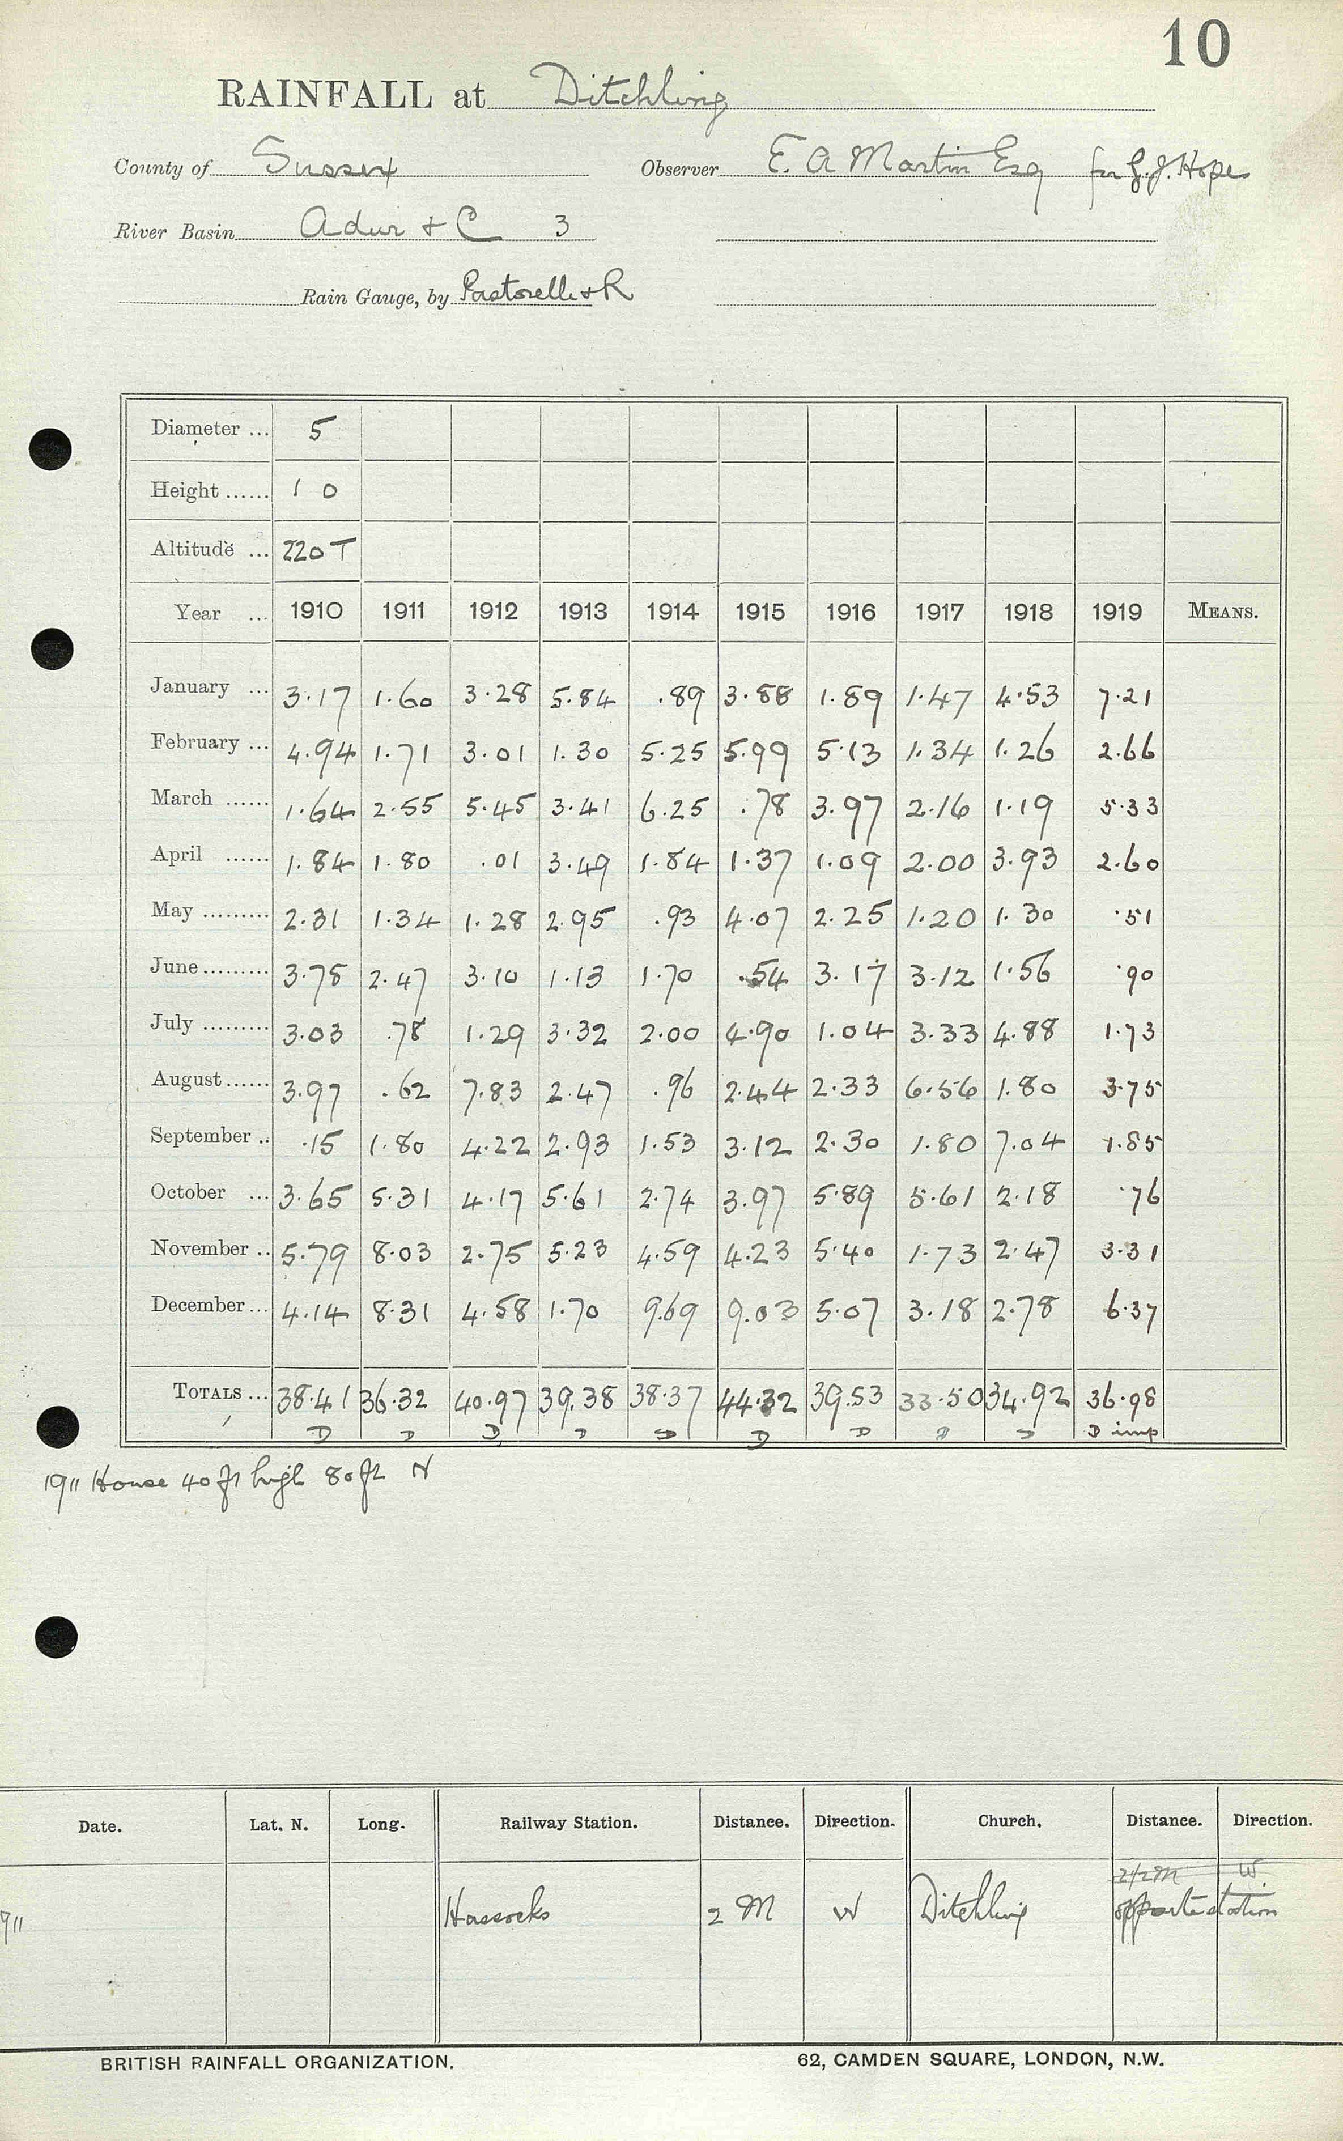 10
RAINFALL at Ditchling
County of Sussex Observer E. A Martin Esq for G.J. Hope
River Basin Adur + C 3
Rain Gauge, by Pastorelli & R
Diameter ... 5
Height ...... 1 0
Altitude ... 220 T
Year ... 1910 1911 1912 1913 1914 1915 1916 1917 1918 1919 MEANS.
January ... 3.17 1.60 3.28 5.84 .89 3.88 1.89 1.47 4.53 7.21
February ... 4.94 1.71 3.01 1.30 5.25 5.99 5.13 1.34 1.26 2.66
March ...... 1.64 2.55 5.45 3.41 6.25 .78 3.97 2.16 1.19 5.33
April ...... 1.84 1.80 .01 3.49 1.84 1.37 1.09 2.00 3.93 2.60
May ......... 2.31 1.34 1.28 2.95 .93 4.07 2.25 1.20 1.30 .51
June ......... 3.78 2.47 3.10 1.13 1.70 .54 3.17 3.12 1.56 .90
July ......... 3.03 .78 1.29 3.32 2.00 4.90 1.04 3.33 4.88 1.73
August ...... 3.97 .62 7.83 2.47 .96 2.44 2.33 6.56 1.80 3.75
September .. .15 1.80 4.22 2.93 1.53 3.12 2.30 1.80 7.04 1.85
October ... 3.65 5.31 4.17 5.61 2.74 3.97 5.89 5.61 2.18 .76
November .. 5.79 8.03 2.75 5.23 4.59 4.23 5.40 1.73 2.47 3.31
December ... 4.14 8.31 4.58 1.70 9.69 9.03 5.07 3.18 2.78 6.37
TOTALS ... 38.41 36.32 40.97 39.38 38.37 44.32 39.53 33.50 34.92 36.98
D D D D D D D D D D imp
1911 House 40 ft high 80 ft N
Date. Lat. N. Long. Railway Station. Distance. Direction. Church. Distance. Direction.
2½M W.
911 Hassocks 2 M W Ditchling opposite station
BRITISH RAINFALL ORGANIZATION. 62, CAMDEN SQUARE, LONDON, N.W.